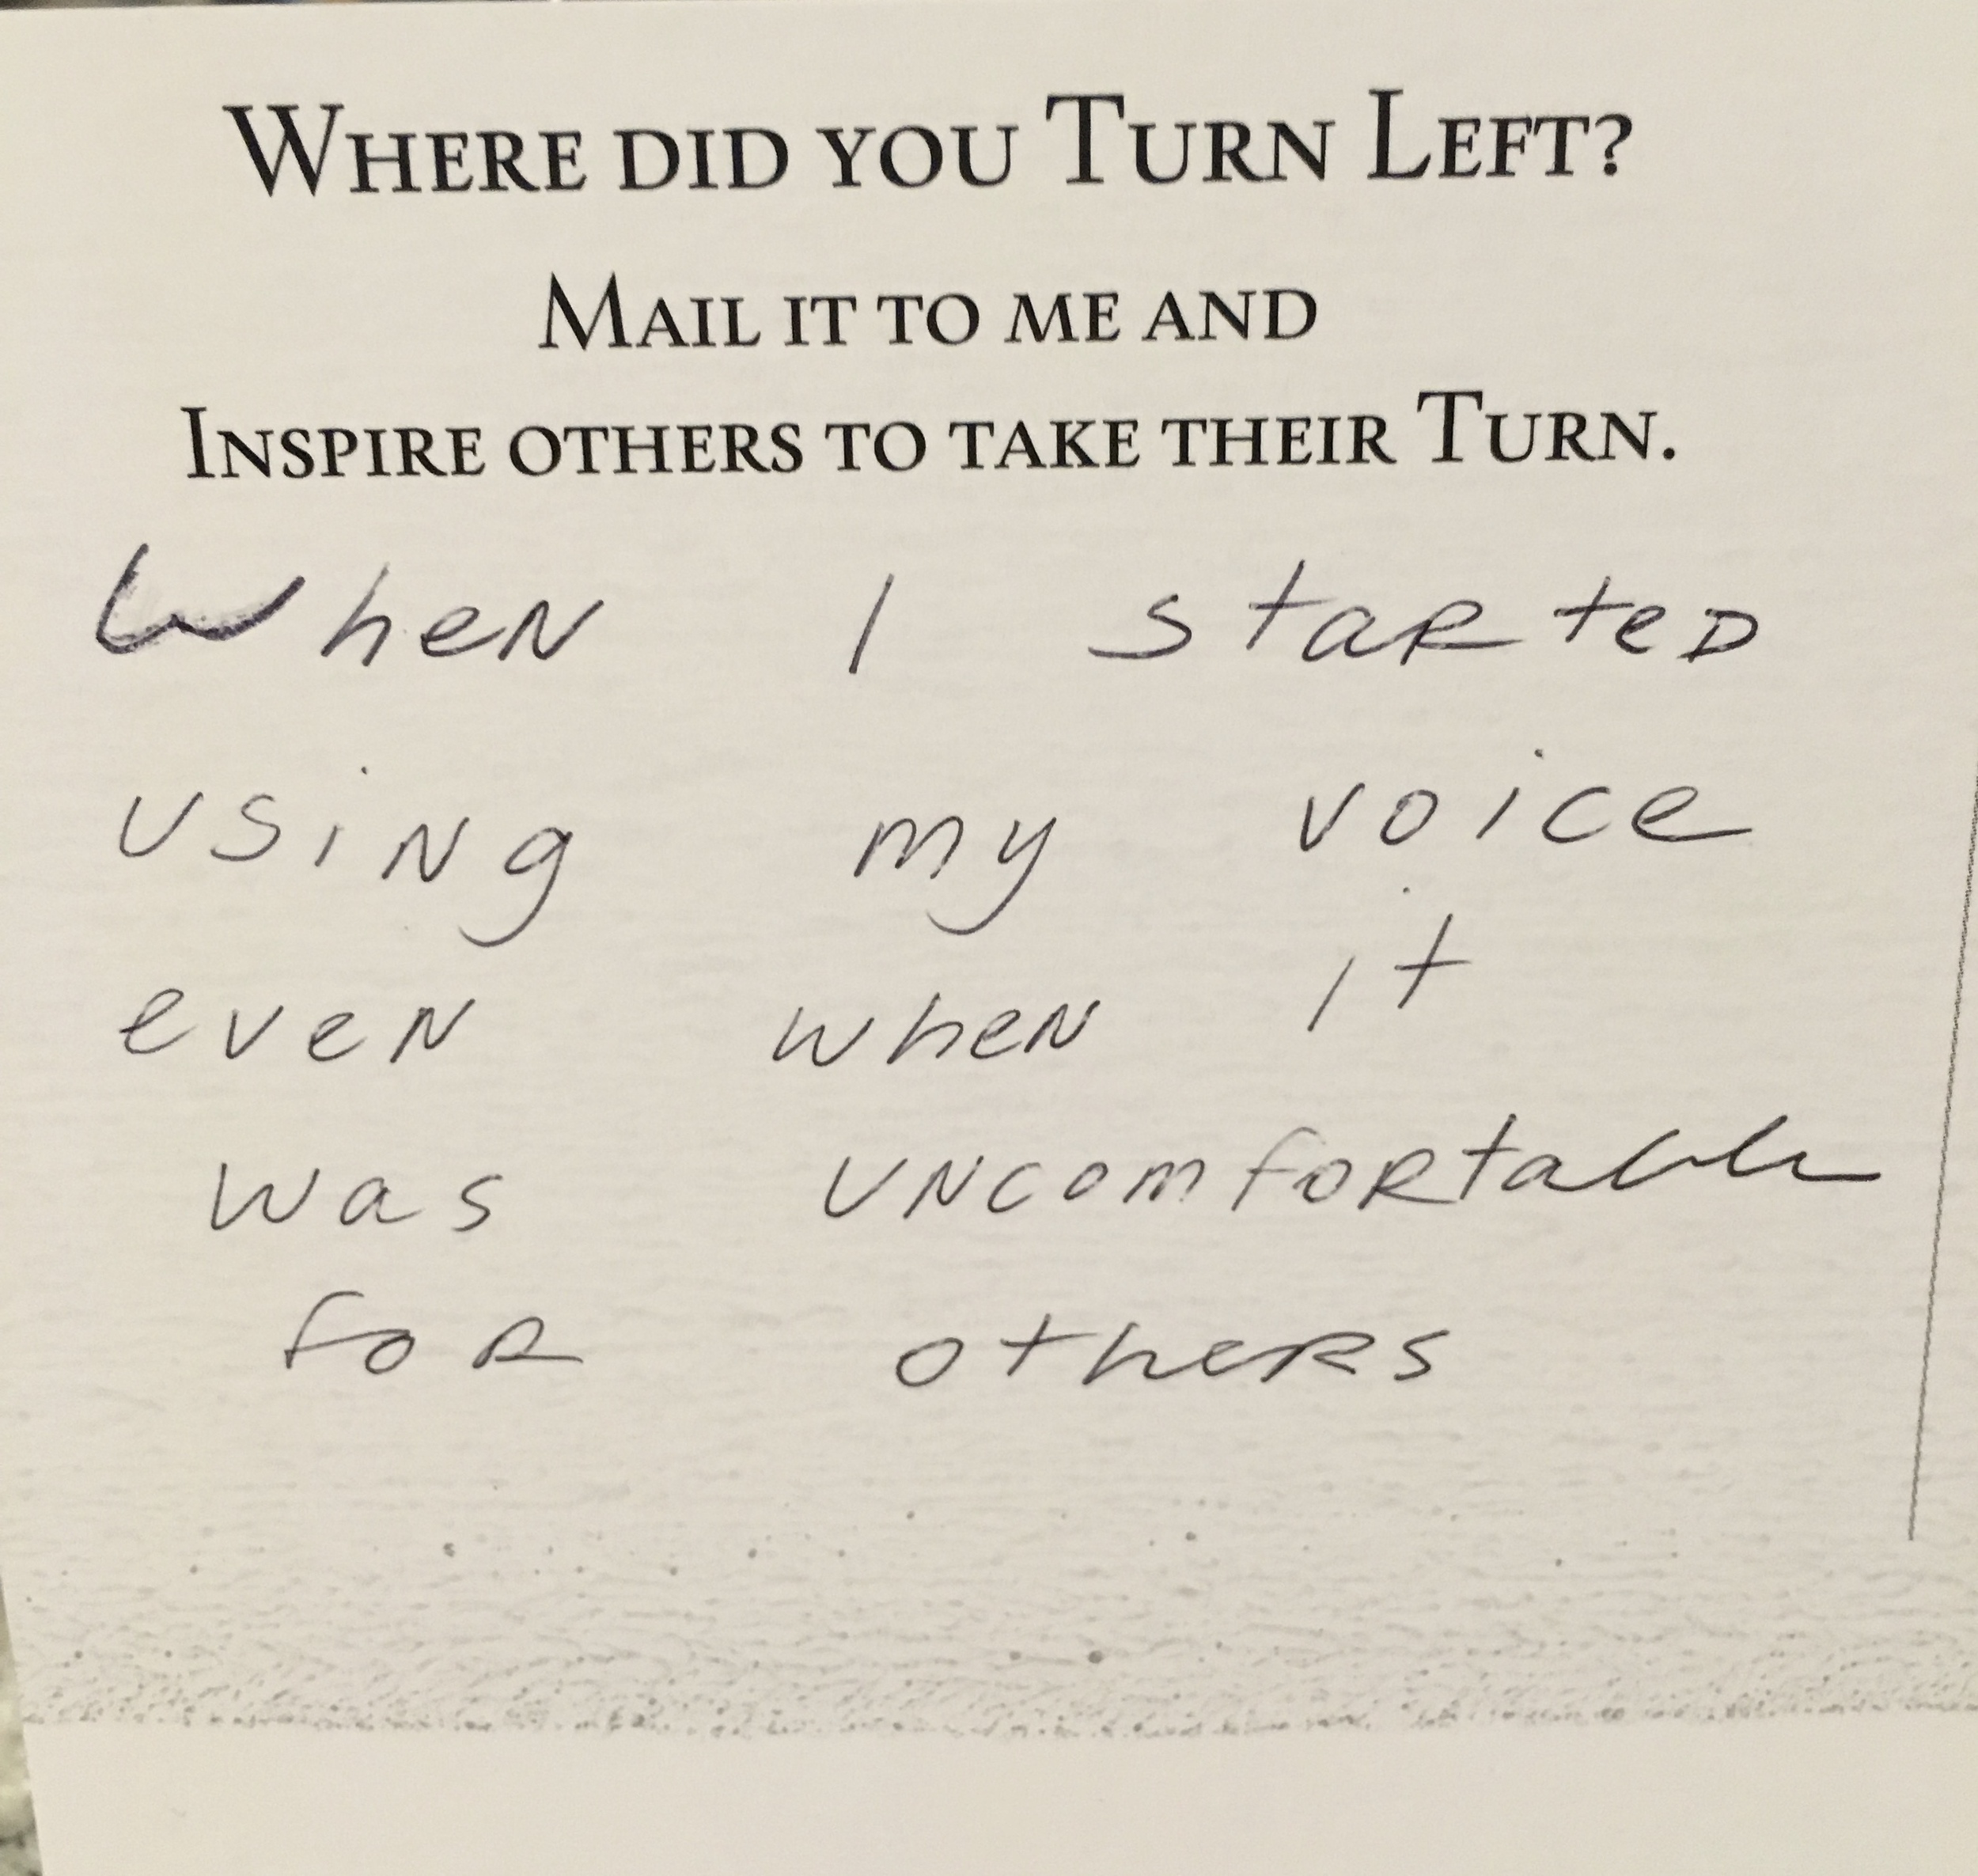 WHERE DID YOU TURN LEFT?
MAIL IT TO ME AND
INSPIRE OTHERS TO TAKE THEIR TURN.
When I started
using my voice
even when it
was uncomfortable
for others